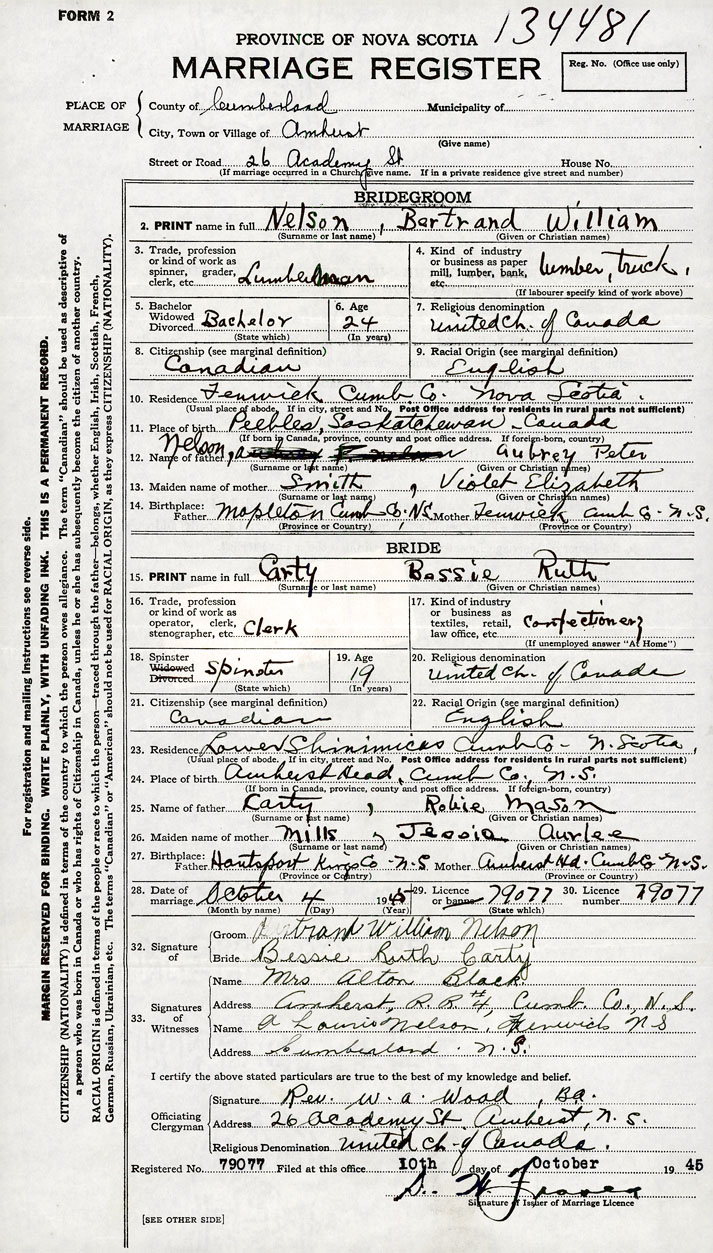 FORM 2
134481
PROVINCE OF NOVA SCOTIA
MARRIAGE REGISTER
Reg. No. (Office use only)
PLACE OF MARRIAGE
County of Cumberland Municipality of
City, Town or Village of Amherst
(Give name)
Street or Road 26 Academy St House No.
(If marriage occurred in a Church, give name. If in a private residence give street and number)
BRIDEGROOM
2. PRINT name in full Nelson, Bertrand William
(Surname or last name) (Given or Christian names)
3. Trade, profession or kind of work as spinner, grader, clerk, etc. Lumberman
4. Kind of industry or business as paper mill, lumber, bank, etc. lumber, truck.
(If labourer specify kind of work above)
5. Bachelor Widowed Divorced Bachelor
(State which)
6. Age 24
(In years)
7. Religious denomination
United Ch. of Canada
8. Citizenship (see marginal definition)
Canadian
9. Racial Origin (see marginal definition)
English
10. Residence Fenwick Cumb Co. Nova Scotia.
(Usual place of abode. If in city, street and No. Post Office address for residents in rural parts not sufficient)
11. Place of birth Peebles, Saskatchewan - Canada
(If born in Canada, province, county and post office address. If foreign-born, country)
12. Name of father Nelson, Aubrey Peter
(Surname or last name) (Given or Christian names)
13. Maiden name of mother Smith, Violet Elizabeth
(Surname or last name) (Given or Christian names)
14. Birthplace: Father Mapleton Cumb Co. N.S. Mother Fenwick Cumb Co - N.S.
(Province or Country) (Province or Country)
BRIDE
15. PRINT name in full Carty Bessie Ruth
(Surname or last name) (Given or Christian names)
16. Trade, profession or kind of work as operator, clerk, stenographer, etc. Clerk
17. Kind of industry or business as textiles, retail, law office, etc. Confectionery
(If unemployed answer "At Home")
18. Spinster Widowed Divorced Spinster
(State which)
19. Age 19
(In years)
20. Religious denomination
United Ch. of Canada
21. Citizenship (see marginal definition)
Canadian
22. Racial Origin (see marginal definition)
English
23. Residence Lower Shinimicas Cumb Co - N. Scotia,
(Usual place of abode. If in city, street and No. Post Office address for residents in rural parts not sufficient)
24. Place of birth Amherst Head, Cumb Co, N.S.
(If born in Canada, province, county and post office address. If foreign-born, country)
25. Name of father Carty, Robie Mason
(Surname or last name) (Given or Christian names)
26. Maiden name of mother Mills, Jessie Aurlee
(Surname or last name) (Given or Christian names)
27. Birthplace: Father Hantsport Kings Co - N.S. Mother Amherst Hd. Cumb Co - N.S.
(Province or Country) (Province or Country)
28. Date of marriage October 4 1945
(Month by name) (Day) (Year)
29. Licence or banns 79077
(State which)
30. Licence number 79077
32. Signature of
Groom Bertrand William Nelson
Bride Bessie Ruth Carty
33. Signatures of Witnesses
Name Mrs Alton Black
Address Amherst, R.R.#4, Cumb. Co., N.S.
Name Nelson, Fenwick N S
Address Cumberland. N.S.
I certify the above stated particulars are true to the best of my knowledge and belief.
Officiating Clergyman
Signature Rev. W. A. Wood, B.A.
Address 26 Academy St. Amherst, N.S.
Religious Denomination United Ch - of Canada.
Registered No. 79077 Filed at this office 10th day of October 19 45
Signature of Issuer of Marriage Licence
[SEE OTHER SIDE]
For registration and mailing instructions see reverse side.
MARGIN RESERVED FOR BINDING. WRITE PLAINLY, WITH UNFADING INK. THIS IS A PERMANENT RECORD.
CITIZENSHIP (NATIONALITY) is defined in terms of the country to which the person owes allegiance. The term "Canadian" should be used as descriptive of
a person who was born in Canada or who has rights of Citizenship in Canada, unless he or she has subsequently become the citizen of another country.
RACIAL ORIGIN is defined in terms of the people or race to which the person—traced through the father—belongs, whether English, Irish, Scottish, French,
German, Russian, Ukrainian, etc. The terms "Canadian" or "American" should not be used for RACIAL ORIGIN, as they express CITIZENSHIP (NATIONALITY).